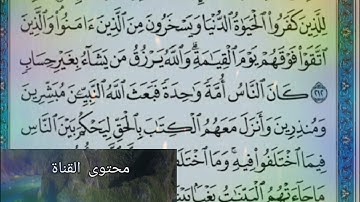 لِلَّذِينَ كَفَرُوا۟ ٱلْحَيَوٰةُ ٱلدُّنْيَا وَيَسْخَرُونَ مِنَ ٱلَّذِينَ ءَامَنُوا۟ وَٱلَّذِينَ
ٱتَّقَوْا۟ فَوْقَهُمْ يَوْمَ ٱلْقِيَٰمَةِ وَٱللَّهُ يَرْزُقُ مَن يَشَآءُ بِغَيْرِ حِسَابٍ
﴿٢١٢﴾ كَانَ ٱلنَّاسُ أُمَّةً وَٰحِدَةً فَبَعَثَ ٱللَّهُ ٱلنَّبِيِّـۧنَ مُبَشِّرِينَ
وَمُنذِرِينَ وَأَنزَلَ مَعَهُمُ ٱلْكِتَٰبَ بِٱلْحَقِّ لِيَحْكُمَ بَيْنَ ٱلنَّاسِ
فِيمَا ٱخْتَلَفُوا۟ فِيهِ وَمَا ٱخْتَلَفَ
مَا جَآءَتْهُمُ ٱلْبَيِّنَٰتُ بَغْيًۢا
محتوى القناة